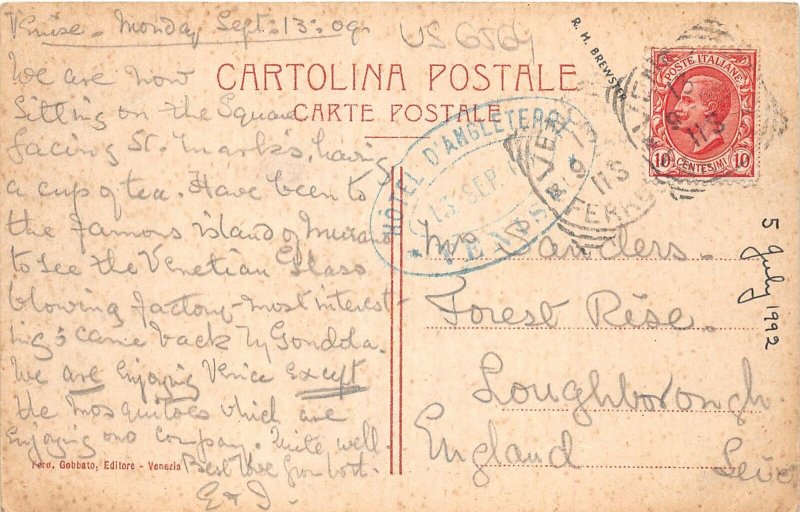 Venise - Monday Sept: 13: 09.
We are now
Sitting on the Square
facing St. Mark's, having
a cup of tea. Have been to
the famous island of Murano
to see the Venetian Glass
blowing factory - most interest-
ing & came back by Gondola.
We are Enjoying Venice Except
the Mosquitoes which are
Enjoying our company. Quite well.
Best love from both.
E & J.
US 6569
CARTOLINA POSTALE
CARTE POSTALE
R. M. BREWSTER
HÔTEL D'ANGLETERRE
13 SEP
VENISE
POSTE ITALIANE
10 CENTESIMI 10
Mrs Sanders.
Forest Rise.
Loughborough.
England
5 July 1992
Ferd. Gobbato, Editore - Venezia